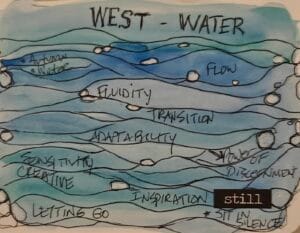 WEST - WATER
• Autumn
• Water
FLOW
FLUIDITY
TRANSITION
ADAPTABILITY
SENSITIVITY
CREATIVE
OF
DISCERNMENT
INSPIRATION
still
LETTING GO
* SIT IN
SILENCE